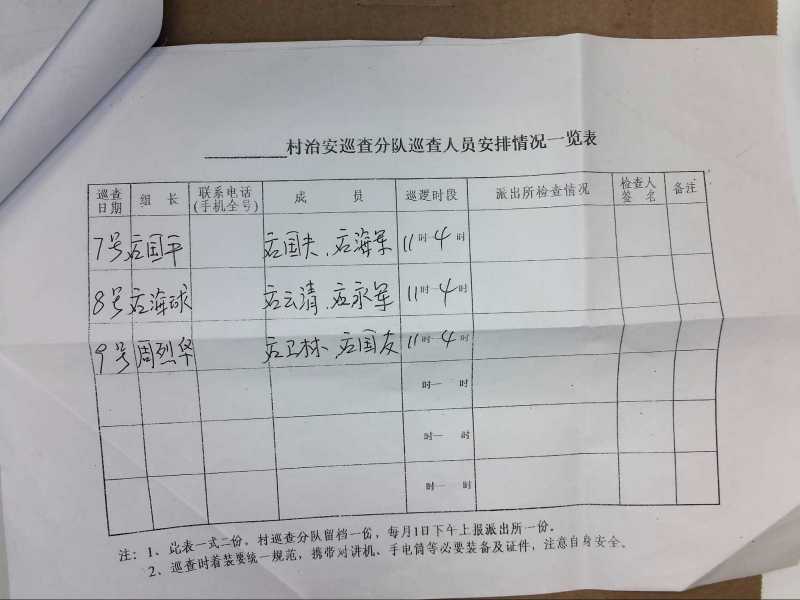 ________村治安巡查分队巡查人员安排情况一览表
巡查日期 组长 联系电话(手机全号) 成员 巡逻时段 派出所检查情况 检查人签名 备注
7号 应国平 应国夫、应海军 11时—4时
8号 应海球 应云清、应永军 11时—4时
9号 周烈华 应卫林、应国友 11时—4时
时— 时
时— 时
时— 时
注：1、此表一式二份，村巡查分队留档一份，每月1日下午上报派出所一份。
2、巡查时着装要统一规范，携带对讲机、手电筒等必要装备及证件，注意自身安全。